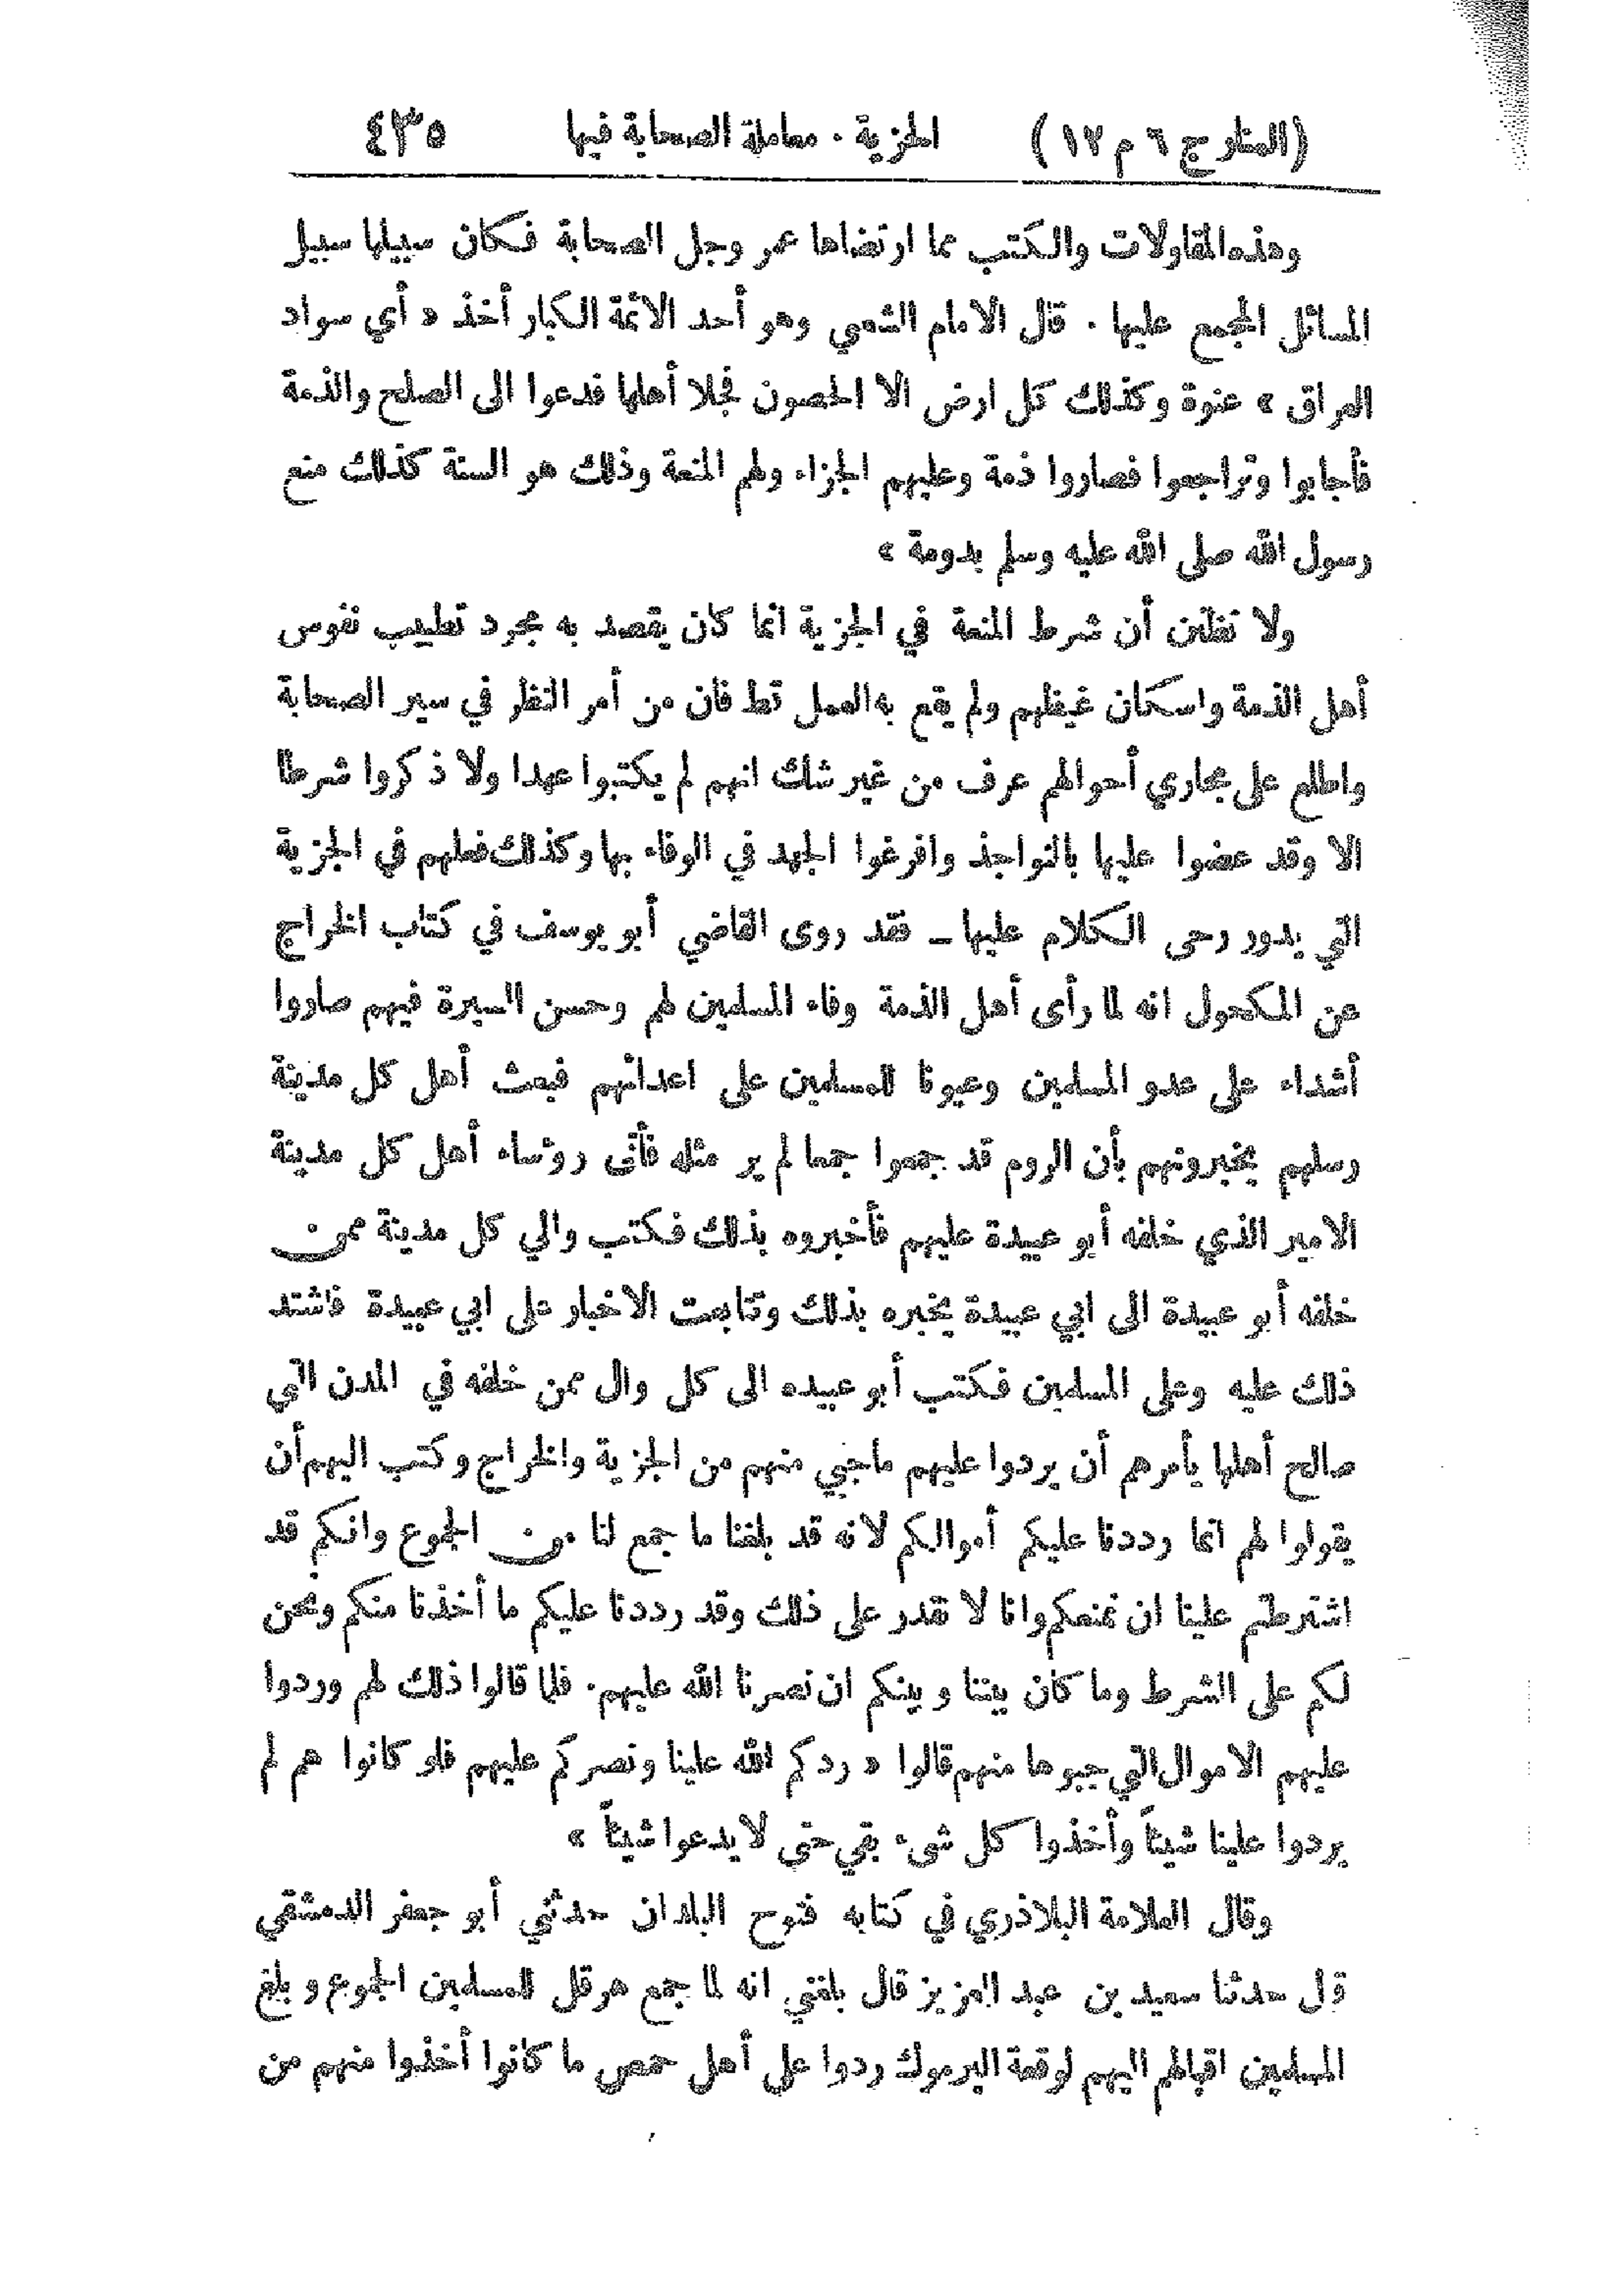 (المنار ج ٦ م ١٢) الجزية . معاملة الصحابة فيها ٤٣٥
وهذه المقاولات والكتب مما ارتضاها عمر وجل الصحابة فكان سبيلها سبيل
المسائل المجمع عليها . قال الامام الشعبي وهو أحد الائمة الكبار أخذ « أي سواد
العراق » عنوة وكذلك كل ارض الا الحصون فجلا أهلها فدعوا الى الصلح والذمة
فأجابوا وتراجعوا فصاروا ذمة وعليهم الجزاء ولهم المنعة وذلك هو السنة كذلك منع
رسول الله صلى الله عليه وسلم بدومة »
ولا تظنن أن شرط المنعة في الجزية انما كان يقصد به مجرد تطييب نفوس
أهل الذمة واسكان غيظهم ولم يقع به العمل قط فان من أمر النظر في سير الصحابة
واطلع على مجاري أحوالهم عرف من غير شك انهم لم يكتبوا عهدا ولا ذكروا شرطا
الا وقد عضوا عليها بالنواجذ وافرغوا الجهد في الوفاء بها وكذلك فعلهم في الجزية
التي يدور رحى الكلام عليها ــ فقد روى القاضي أبو يوسف في كتاب الخراج
عن المكحول انه لما رأى أهل الذمة وفاء المسلمين لهم وحسن السيرة فيهم صاروا
أشداء على عدو المسلمين وعيونا للمسلمين على اعدائهم فبعث أهل كل مدينة
رسلهم يخبرونهم بأن الروم قد جمعوا جمعا لم ير مثله فأتى رؤساء أهل كل مدينة
الامير الذي خلفه أبو عبيدة عليهم فأخبروه بذلك فكتب والي كل مدينة ممن
خلفه أبو عبيدة الى ابي عبيدة يخبره بذلك وتتابعت الاخبار على ابي عبيدة فاشتد
ذلك عليه وعلى المسلمين فكتب أبو عبيده الى كل وال ممن خلفه في المدن التي
صالح أهلها يأمرهم أن يردوا عليهم ماجبي منهم من الجزية والخراج وكتب اليهم أن
يقولوا لهم انما رددنا عليكم أموالكم لانه قد بلغنا ما جمع لنا من الجموع وانكم قد
اشترطتم علينا ان نمنعكم وانا لا نقدر على ذلك وقد رددنا عليكم ما أخذنا منكم ونحن
لكم على الشرط وما كان بيننا وبينكم ان نصرنا الله عليهم . فلما قالوا ذلك لهم وردوا
عليهم الاموال التي جبوها منهم قالوا « ردكم الله علينا ونصركم عليهم فلو كانوا هم لم
يردوا علينا شيئاً وأخذوا كل شيء بقي حتى لا يدعوا شيئاً »
وقال العلامة البلاذري في كتابه فتوح البلدان حدثني أبو جعفر الدمشقي
قال حدثنا سعيد بن عبد العزيز قال بلغني انه لما جمع هرقل للمسلمين الجموع وبلغ
المسلمين اقبالهم اليهم لوقعة اليرموك ردوا على أهل حمص ما كانوا أخذوا منهم من